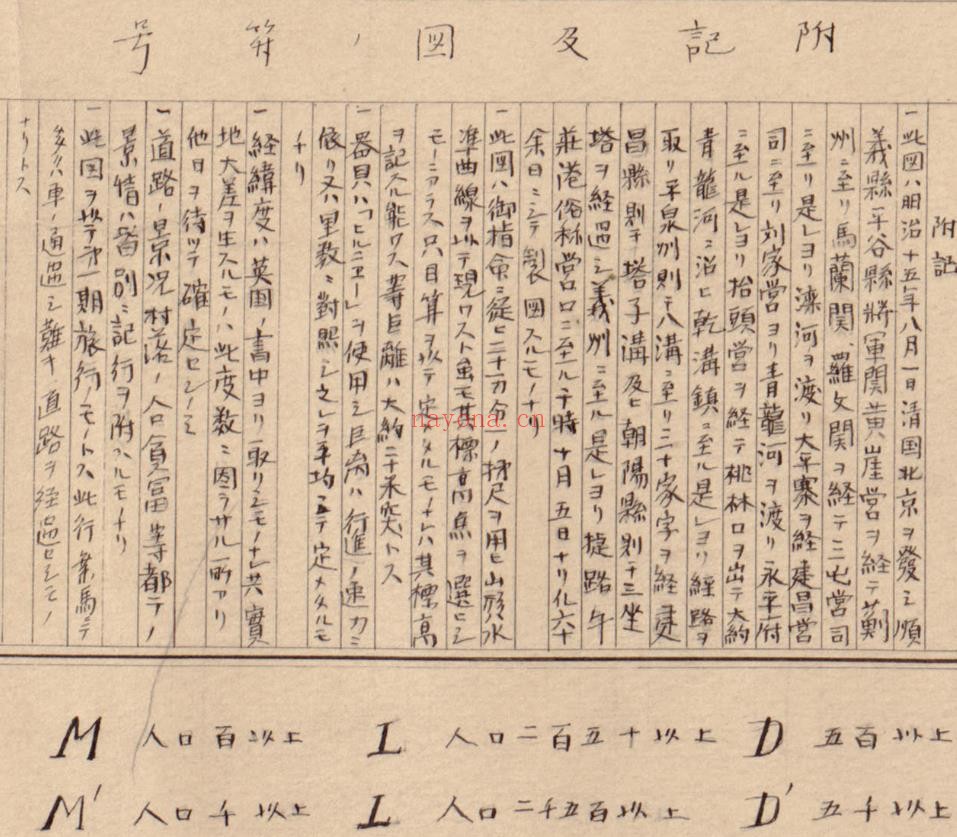 附記及図ノ符号
附記
一此図ハ明治十五年八月一日清国北京ヲ發シ順
義縣平谷縣将軍関黄崖営ヲ経テ薊
州ニ至リ馬蘭関羅文関ヲ経テ三屯営司
ニ至リ是レヨリ灤河ヲ渡リ大平寨ヲ経建昌営
司ニ至リ刘家営ヨリ青龍河ヲ渡リ永平府
ニ至ル是レヨリ抬頭営ヲ経テ桃林口ヲ出テ大約
青龍河ニ沿ヒ乾溝鎮ニ至ル是レヨリ経路ヲ
取リ平泉州則チ八溝ニ至リ三十家字ヲ経建
昌縣則チ塔子溝及ヒ朝陽縣則チ三坐
塔ヲ経過シ義州ニ至ル是レヨリ捷路牛
荘港俗称営口ニ至ル于時十月五日ナリ凡六十
余日ニシテ製図スルモノナリ
一此図ハ御指命ニ従ヒ二十万分一ノ梯尺ヲ用ヒ山形水
準曲線ヲ以テ現ワスト虽モ其標高焦ヲ選ヒシ
モノニアラス只目算ヲ以テ定メタルモノナレハ其標高
ヲ記スル能ワス等巨離ハ大約二十米突トス
一器具ハ「ヒルニヱール」ヲ使用シ巨离ハ行進ノ速力ニ
依リ又ハ里数ニ對照シ之レヲ平均シテ定メタルモ
ノナリ
一経緯度ハ英国ノ書中ヨリ取リシモノナレ共實
地大差ヲ生スルモノハ此度数ニ因ラサル所アリ
他日ヲ待ツテ確定セシノミ
一道路ノ景况村落ノ人口貧富等都テノ
景情ハ皆別ニ記行ヲ附スルモノナリ
一此図ヲ以テ第一期旅行ノモノトス此行業馬ニテ
多クハ車ノ通過シ難キ直路ヲ経過セシモノ
ナリトス
nayona.cn
M 人口百以上 L 人口二百五十以上 D 五百以上
M' 人口千以上 L 人口二千五百以上 D' 五千以上